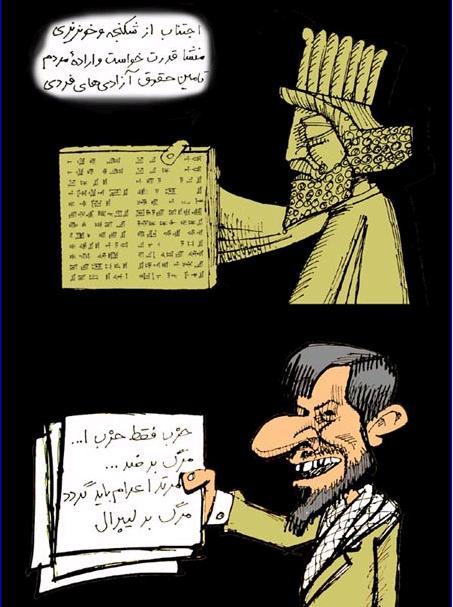 اجتناب از شکنجه و خونریزی
منشأ قدرت خواست و ارادهٔ مردم
تأمین حقوق آزادی‌های فردی
حزب فقط حزب ا...
مرگ بر ضد ...
مرتد اعدام باید گردد
مرگ بر لیبرال